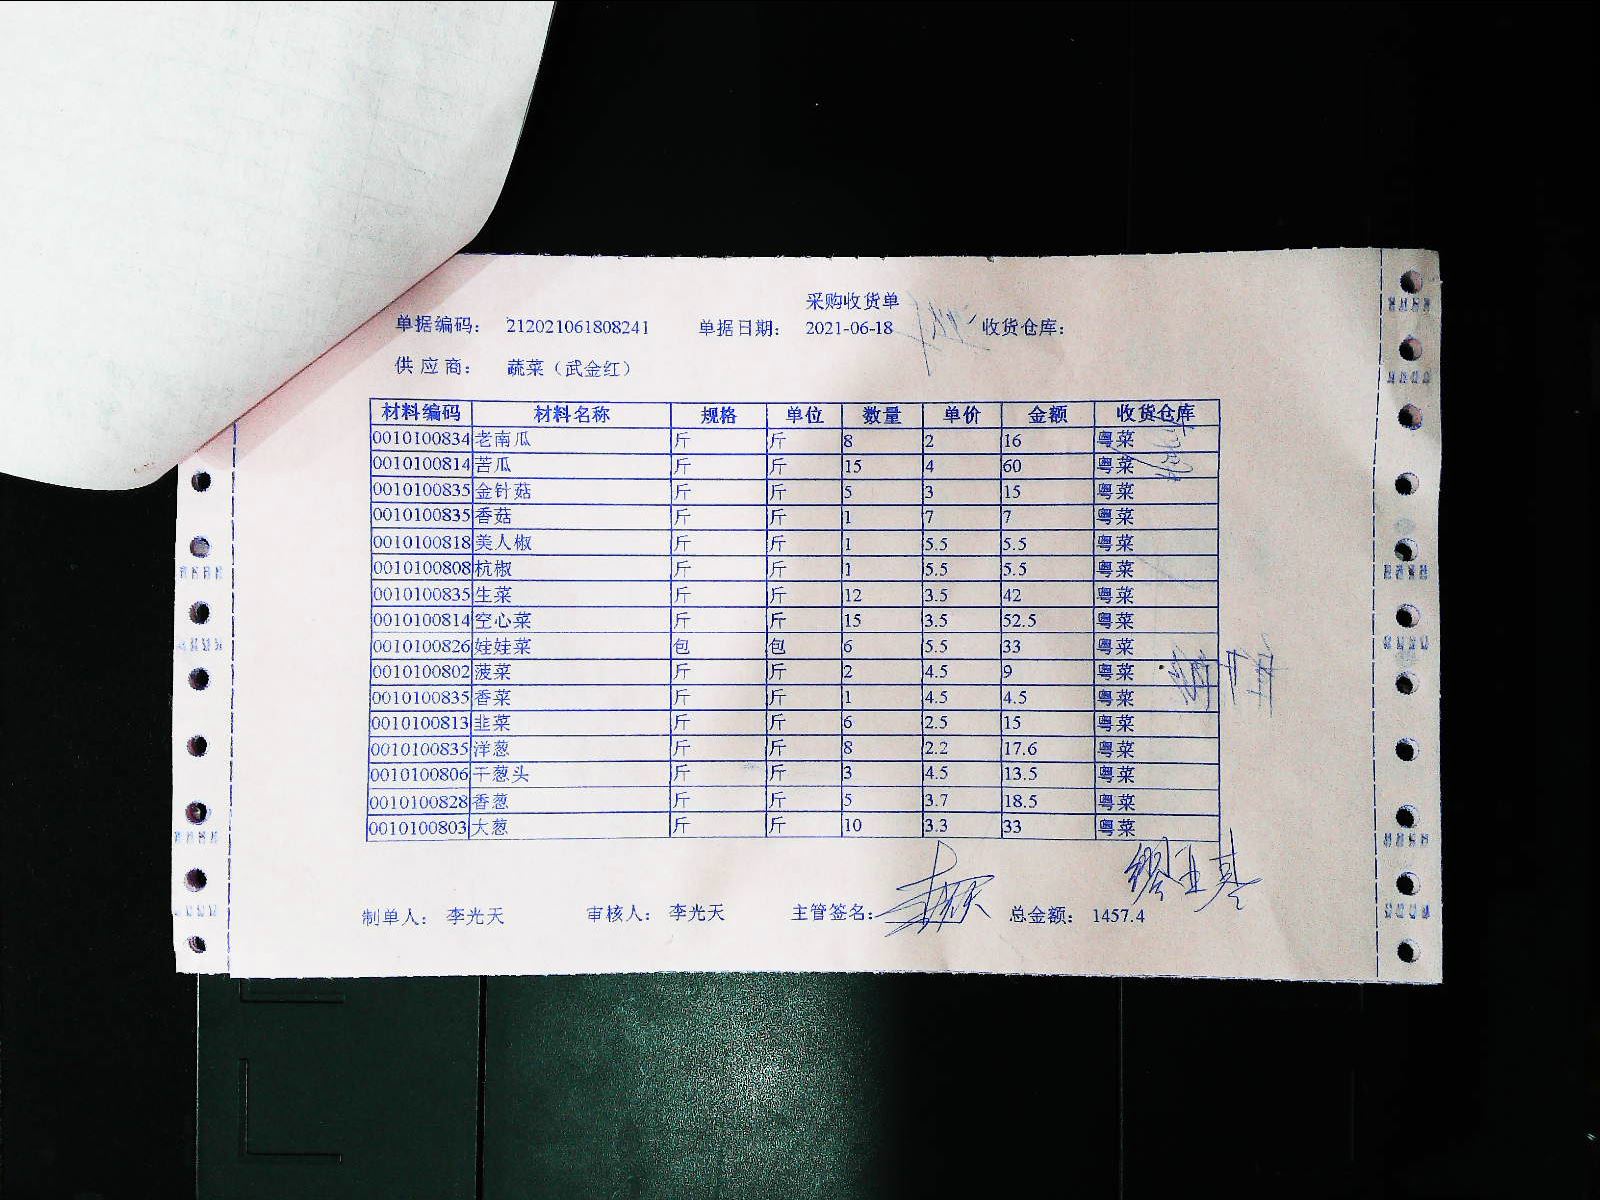 采购收货单
单据编码： 212021061808241 单据日期： 2021-06-18 收货仓库：
供 应 商： 蔬菜（武金红）
材料编码 材料名称 规格 单位 数量 单价 金额 收货仓库
0010100834 老南瓜 斤 斤 8 2 16 粤菜
0010100814 苦瓜 斤 斤 15 4 60 粤菜
0010100835 金针菇 斤 斤 5 3 15 粤菜
0010100835 香菇 斤 斤 1 7 7 粤菜
0010100818 美人椒 斤 斤 1 5.5 5.5 粤菜
0010100808 杭椒 斤 斤 1 5.5 5.5 粤菜
0010100835 生菜 斤 斤 12 3.5 42 粤菜
0010100814 空心菜 斤 斤 15 3.5 52.5 粤菜
0010100826 娃娃菜 包 包 6 5.5 33 粤菜
0010100802 菠菜 斤 斤 2 4.5 9 粤菜
0010100835 香菜 斤 斤 1 4.5 4.5 粤菜
0010100813 韭菜 斤 斤 6 2.5 15 粤菜
0010100835 洋葱 斤 斤 8 2.2 17.6 粤菜
0010100806 干葱头 斤 斤 3 4.5 13.5 粤菜
0010100828 香葱 斤 斤 5 3.7 18.5 粤菜
0010100803 大葱 斤 斤 10 3.3 33 粤菜
制单人： 李光天 审核人： 李光天 主管签名： 总金额： 1457.4